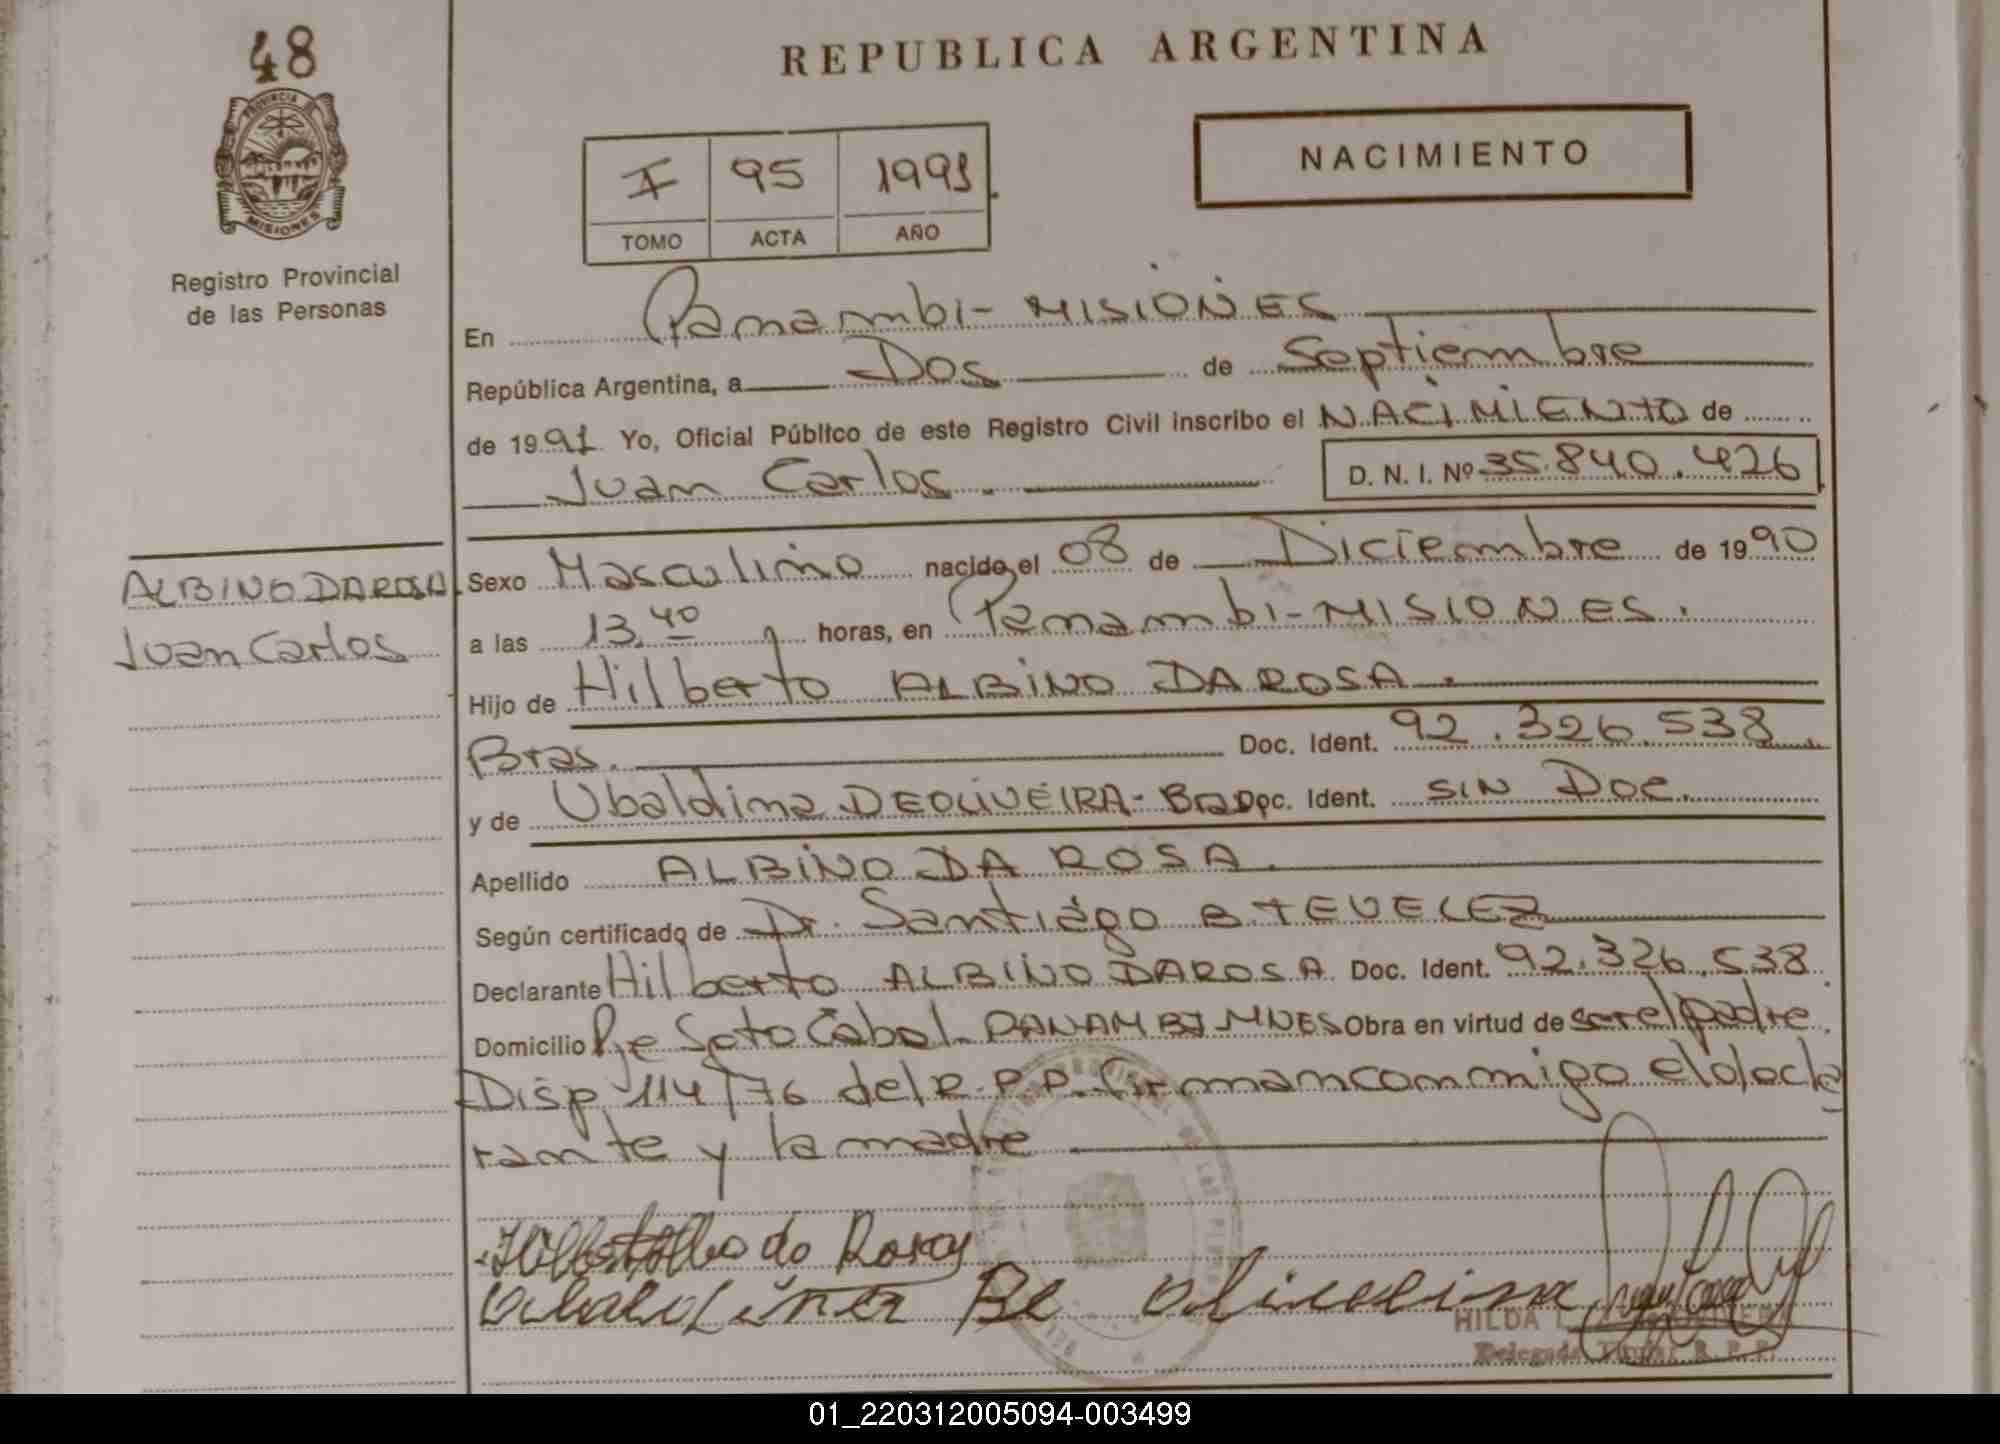 48
REPUBLICA ARGENTINA
PROVINCIA DE
MISIONES
Registro Provincial
de las Personas
I 95 1991
TOMO ACTA AÑO
NACIMIENTO
En Panambi - MISIONES
República Argentina, a Dos de Septiembre
de 1991 Yo, Oficial Público de este Registro Civil inscribo el NACIMIENTO de
Juan Carlos. D. N. I. Nº 35.840.426
ALBINO DAROSA
Juan Carlos
Sexo Masculino nacido el 08 de Diciembre de 1990
a las 13.40 horas, en Panambi - MISIONES.
Hijo de Hilberto ALBINO DA ROSA.
Bras. Doc. Ident. 92.326.538
y de Ubaldina DEOLIVEIRA - Bras Doc. Ident. SIN Doc.
Apellido ALBINO DA ROSA.
Según certificado de Dr. Santiágo
Declarante Hilberto ALBINO DAROSA Doc. Ident. 92.326.538.
Domicilio Pje Soto Cabal - PANAMBI MNES Obra en virtud de ser el padre.
Disp 114/76 del R.P.P. firman conmigo el decla
rante y la madre
da Rosa
De oliveira
HILDA
Delegada Titular R. P. P.
01_220312005094-003499